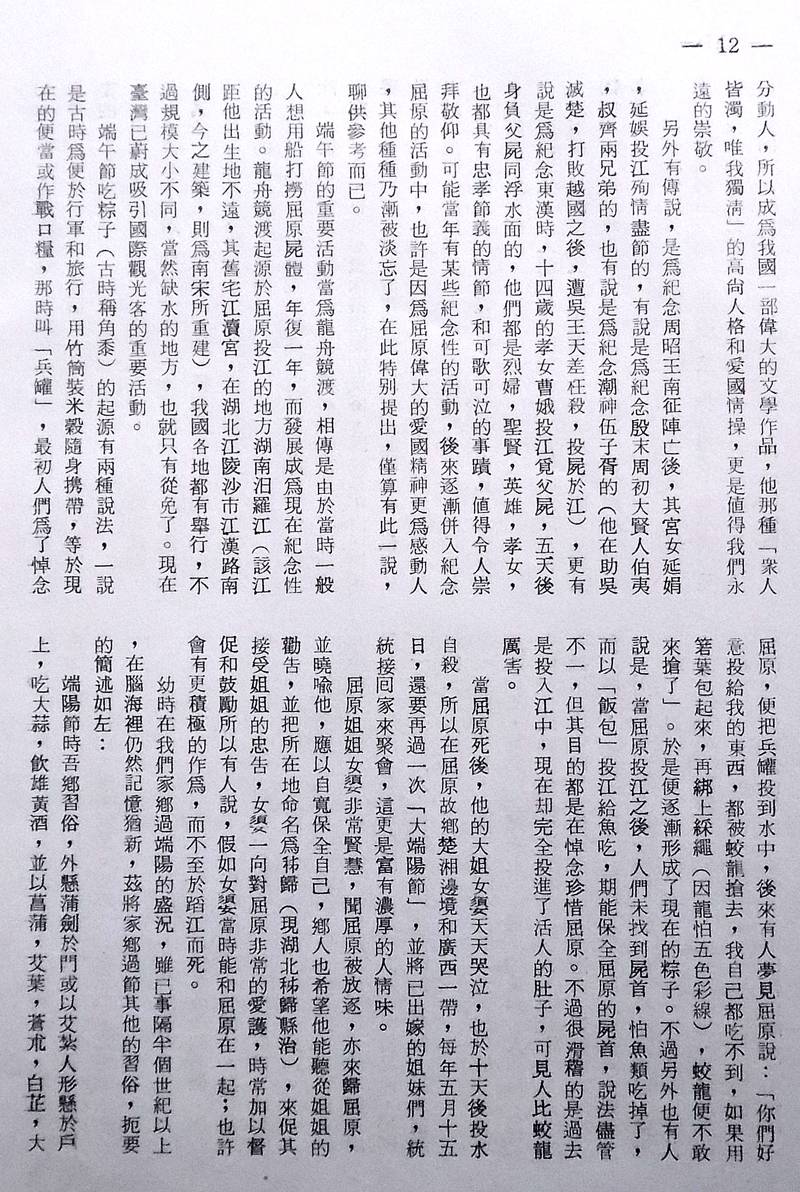 — 12 —
分動人，所以成爲我國一部偉大的文學作品，他那種「衆人
皆濁，唯我獨清」的高尚人格和愛國情操，更是値得我們永
遠的崇敬。
另外有傳說，是爲紀念周昭王南征陣亡後，其宮女延娟
，延娛投江殉情盡節的，有說是爲紀念殷末周初大賢人伯夷
，叔齊兩兄弟的，也有說是爲紀念潮神伍子胥的（他在助吳
滅楚，打敗越國之後，遭吳王夫差枉殺，投屍於江），更有
說是爲紀念東漢時，十四歲的孝女曹娥投江覓父屍，五天後
身負父屍同浮水面的，他們都是烈婦，聖賢，英雄，孝女，
也都具有忠孝節義的情節，和可歌可泣的事蹟，値得令人崇
拜敬仰。可能當年有某些紀念性的活動，後來逐漸併入紀念
屈原的活動中，也許是因爲屈原偉大的愛國精神更爲感動人
，其他種種乃漸被淡忘了，在此特別提出，僅算有此一說，
聊供參考而已。
端午節的重要活動當爲龍舟競渡，相傳是由於當時一般
人想用船打撈屈原屍體，年復一年，而發展成爲現在紀念性
的活動。龍舟競渡起源於屈原投江的地方湖南汨羅江（該江
距他出生地不遠，其舊宅江瀆宮，在湖北江陵沙市江漢路南
側，今之建築，則爲南宋所重建），我國各地都有舉行，不
過規模大小不同，當然缺水的地方，也就只有從免了。現在
臺灣已蔚成吸引國際觀光客的重要活動。
端午節吃粽子（古時稱角黍）的起源有兩種說法，一說
是古時爲便於行軍和旅行，用竹筒裝米穀隨身携帶，等於現
在的便當或作戰口糧，那時叫「兵罐」，最初人們爲了悼念
屈原，便把兵罐投到水中，後來有人夢見屈原說：「你們好
意投給我的東西，都被蛟龍搶去，我自己都吃不到，如果用
箬葉包起來，再綁上綵繩（因龍怕五色彩線），蛟龍便不敢
來搶了」。於是便逐漸形成了現在的粽子。不過另外也有人
說是，當屈原投江之後，人們未找到屍首，怕魚類吃掉了，
而以「飯包」投江給魚吃，期能保全屈原的屍首，說法儘管
不一，但其目的都是在悼念珍惜屈原。不過很滑稽的是過去
是投入江中，現在却完全投進了活人的肚子，可見人比蛟龍
厲害。
當屈原死後，他的大姐女嬃天天哭泣，也於十天後投水
自殺，所以在屈原故鄉楚湘邊境和廣西一帶，每年五月十五
日，還要再過一次「大端陽節」，並將已出嫁的姐妹們，統
統接回家來聚會，這更是富有濃厚的人情味。
屈原姐姐女嬃非常賢慧，聞屈原被放逐，亦來歸屈原，
並曉喩他，應以自寬保全自己，鄉人也希望他能聽從姐姐的
勸告，並把所在地命名爲秭歸（現湖北秭歸縣治），來促其
接受姐姐的忠告，女嬃一向對屈原非常的愛護，時常加以督
促和鼓勵所以有人說，假如女嬃當時能和屈原在一起；也許
會有更積極的作爲，而不至於蹈江而死。
幼時在我們家鄉過端陽的盛況，雖已事隔半個世紀以上
，在腦海裡仍然記憶猶新，茲將家鄉過節其他的習俗，扼要
的簡述如左：
端陽節時吾鄉習俗，外懸蒲劍於門或以艾紮人形懸於戶
上，吃大蒜，飲雄黃酒，並以菖蒲，艾葉，蒼朮，白芷，大